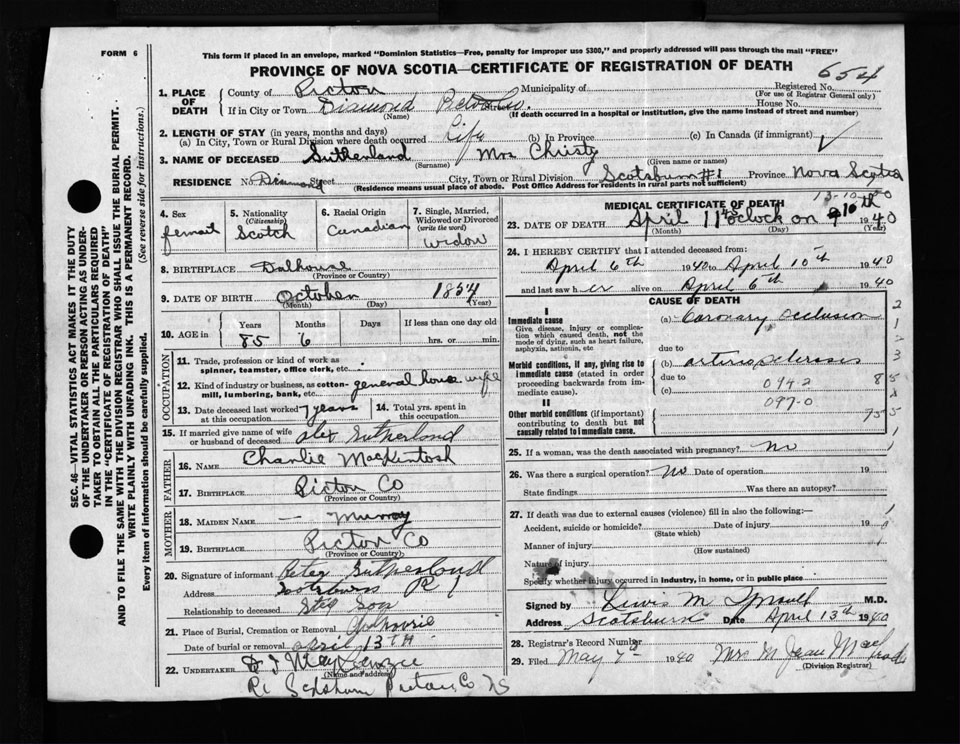 FORM 6
This form if placed in an envelope, marked "Dominion Statistics—Free, penalty for improper use $300," and properly addressed will pass through the mail "FREE"
PROVINCE OF NOVA SCOTIA—CERTIFICATE OF REGISTRATION OF DEATH
654
1. PLACE OF DEATH
County of Pictou Municipality of Registered No.
(For use of Registrar General only)
If in City or Town Diamond Pictou Co. House No.
(Name) (If death occurred in a hospital or institution, give the name instead of street and number)
2. LENGTH OF STAY (in years, months and days)
(a) In City, Town or Rural Division where death occurred Life (b) In Province (c) In Canada (if immigrant)
3. NAME OF DECEASED Sutherland Mrs Christy
(Surname) (Given name or names)
RESIDENCE No. Diamond Street City, Town or Rural Division Scotsburn #1 Province Nova Scotia
(Residence means usual place of abode. Post Office Address for residents in rural parts not sufficient)
4. Sex
5. Nationality (Citizenship) Scotch
6. Racial Origin Canadian
7. Single, Married, Widowed or Divorced (write the word) widow
8. BIRTHPLACE Dalhousie
(Province or Country)
9. DATE OF BIRTH October 1854
(Month) (Day) (Year)
10. AGE in Years Months Days If less than one day old
85 6 hrs. or min.
OCCUPATION
11. Trade, profession or kind of work as spinner, teamster, office clerk, etc.
12. Kind of industry or business, as cotton-mill, lumbering, bank, etc. general house wife
13. Date deceased last worked at this occupation 7 years
14. Total yrs. spent in this occupation.
15. If married give name of wife or husband of deceased Alex Sutherland
FATHER
16. NAME Charlie MacKintosh
17. BIRTHPLACE Pictou Co
(Province or Country)
MOTHER
18. MAIDEN NAME — Murray
19. BIRTHPLACE Pictou Co
(Province or Country)
20. Signature of informant Peter Sutherland
Address Scotsburn R 1
Relationship to deceased Step Son
21. Place of Burial, Cremation or Removal Dalhousie
Date of burial or removal April 13TH
22. UNDERTAKER D T MacKenzie
(Name and address)
R1 Pictou Co NS
MEDICAL CERTIFICATE OF DEATH
13-10-
23. DATE OF DEATH April 11 oclock on 10th 1940
(Month) (Day) (Year)
24. I HEREBY CERTIFY that I attended deceased from:
April 6th 1940 to April 10th 1940
and last saw her alive on April 6th 1940
CAUSE OF DEATH
I
Immediate cause
Give disease, injury or complication which caused death, not the mode of dying, such as heart failure, asphyxia, asthenia, etc
(a) Coronary Occlusion
due to
Morbid conditions, if any, giving rise to immediate cause (stated in order proceeding backwards from immediate cause).
(b) arteriosclerosis
due to
(c) 094-2
097-0
II
Other morbid conditions (if important) contributing to death but not causally related to immediate cause.
25. If a woman, was the death associated with pregnancy? No
26. Was there a surgical operation? No Date of operation 19
State findings Was there an autopsy?
27. If death was due to external causes (violence) fill in also the following:—
Accident, suicide or homicide? Date of injury 19
(State which)
Manner of injury
(How sustained)
Nature of injury
Specify whether injury occurred in industry, in home, or in public place
Signed by Lewis M M.D.
Address Scotsburn Date April 13th 1940
28. Registrar's Record Number
29. Filed May 7th 1940 Mrs M Jean
(Division Registrar)
SEC. 46—VITAL STATISTICS ACT MAKES IT THE DUTY OF THE UNDERTAKER OR PERSON ACTING AS UNDERTAKER TO OBTAIN ALL THE PARTICULARS REQUIRED IN THE "CERTIFICATE OF REGISTRATION OF DEATH" AND TO FILE THE SAME WITH THE DIVISION REGISTRAR WHO SHALL ISSUE THE BURIAL PERMIT.
WRITE PLAINLY WITH UNFADING INK. THIS IS A PERMANENT RECORD.
Every item of information should be carefully supplied. (See reverse side for instructions.)